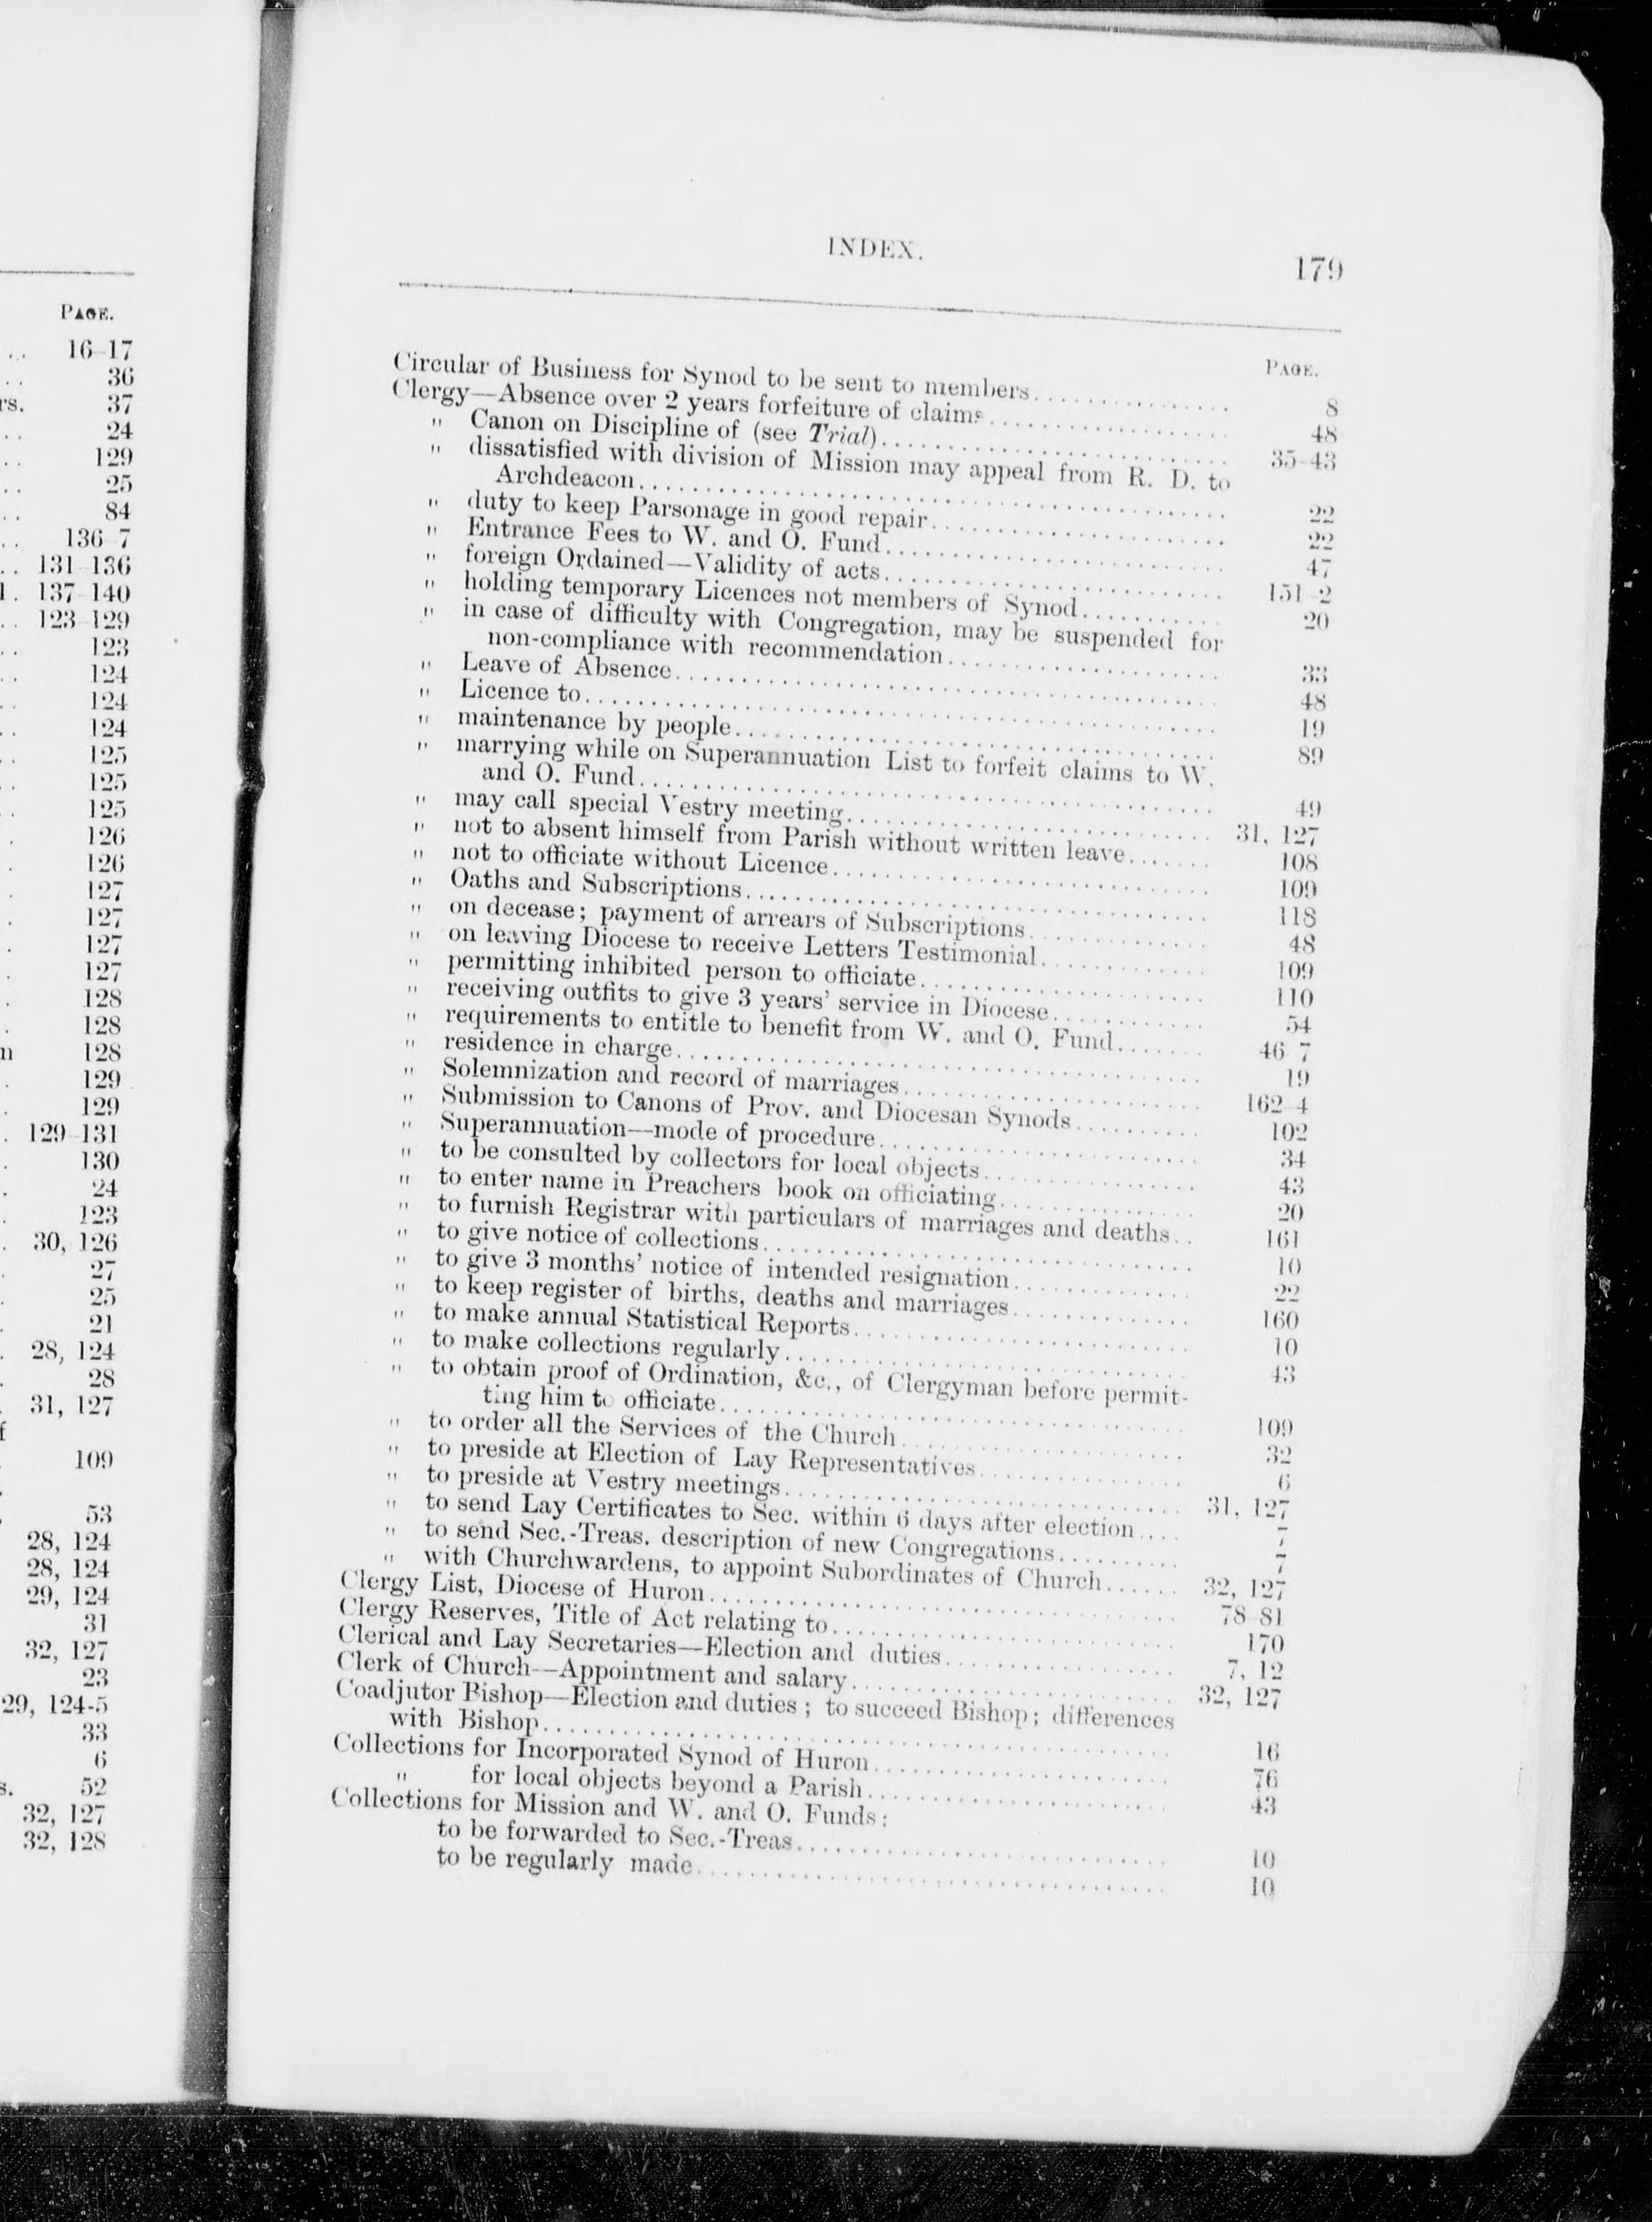 PAGE.
16-17
36
rs. 37
24
129
25
84
136-7
131-136
l. 137-140
123-129
123
124
124
124
125
125
125
126
126
127
127
127
127
128
128
n 128
129
129
129-131
130
24
123
30, 126
27
25
21
28, 124
28
31, 127
f
109
53
28, 124
28, 124
29, 124
31
32, 127
23
29, 124-5
33
6
s. 52
32, 127
32, 128
INDEX. 179
PAGE.
Circular of Business for Synod to be sent to members................ 8
Clergy—Absence over 2 years forfeiture of claims.................. 48
" Canon on Discipline of (see Trial).......................... 35-43
" dissatisfied with division of Mission may appeal from R. D. to
Archdeacon............................................ 22
" duty to keep Parsonage in good repair...................... 22
" Entrance Fees to W. and O. Fund.......................... 47
" foreign Ordained—Validity of acts.......................... 151-2
" holding temporary Licences not members of Synod............ 20
" in case of difficulty with Congregation, may be suspended for
non-compliance with recommendation.................... 33
" Leave of Absence........................................ 48
" Licence to.............................................. 19
" maintenance by people.................................... 89
" marrying while on Superannuation List to forfeit claims to W.
and O. Fund.......................................... 49
" may call special Vestry meeting............................ 31, 127
" not to absent himself from Parish without written leave....... 108
" not to officiate without Licence............................ 109
" Oaths and Subscriptions.................................. 118
" on decease; payment of arrears of Subscriptions.............. 48
" on leaving Diocese to receive Letters Testimonial............. 109
" permitting inhibited person to officiate...................... 110
" receiving outfits to give 3 years' service in Diocese............ 54
" requirements to entitle to benefit from W. and O. Fund....... 46-7
" residence in charge...................................... 19
" Solemnization and record of marriages...................... 162-4
" Submission to Canons of Prov. and Diocesan Synods.......... 102
" Superannuation—mode of procedure........................ 34
" to be consulted by collectors for local objects................ 43
" to enter name in Preachers book on officiating................ 20
" to furnish Registrar with particulars of marriages and deaths.. 161
" to give notice of collections................................ 10
" to give 3 months' notice of intended resignation.............. 22
" to keep register of births, deaths and marriages.............. 160
" to make annual Statistical Reports.......................... 10
" to make collections regularly.............................. 43
" to obtain proof of Ordination, &c., of Clergyman before permit-
ting him to officiate.................................... 109
" to order all the Services of the Church...................... 32
" to preside at Election of Lay Representatives................ 6
" to preside at Vestry meetings.............................. 31, 127
" to send Lay Certificates to Sec. within 6 days after election.... 7
" to send Sec.-Treas. description of new Congregations.......... 7
" with Churchwardens, to appoint Subordinates of Church...... 32, 127
Clergy List, Diocese of Huron.................................... 78-81
Clergy Reserves, Title of Act relating to.......................... 170
Clerical and Lay Secretaries—Election and duties.................. 7, 12
Clerk of Church—Appointment and salary........................ 32, 127
Coadjutor Bishop—Election and duties; to succeed Bishop; differences
with Bishop.............................................. 16
Collections for Incorporated Synod of Huron...................... 76
" for local objects beyond a Parish........................ 43
Collections for Mission and W. and O. Funds:
to be forwarded to Sec.-Treas............................ 10
to be regularly made.................................... 10